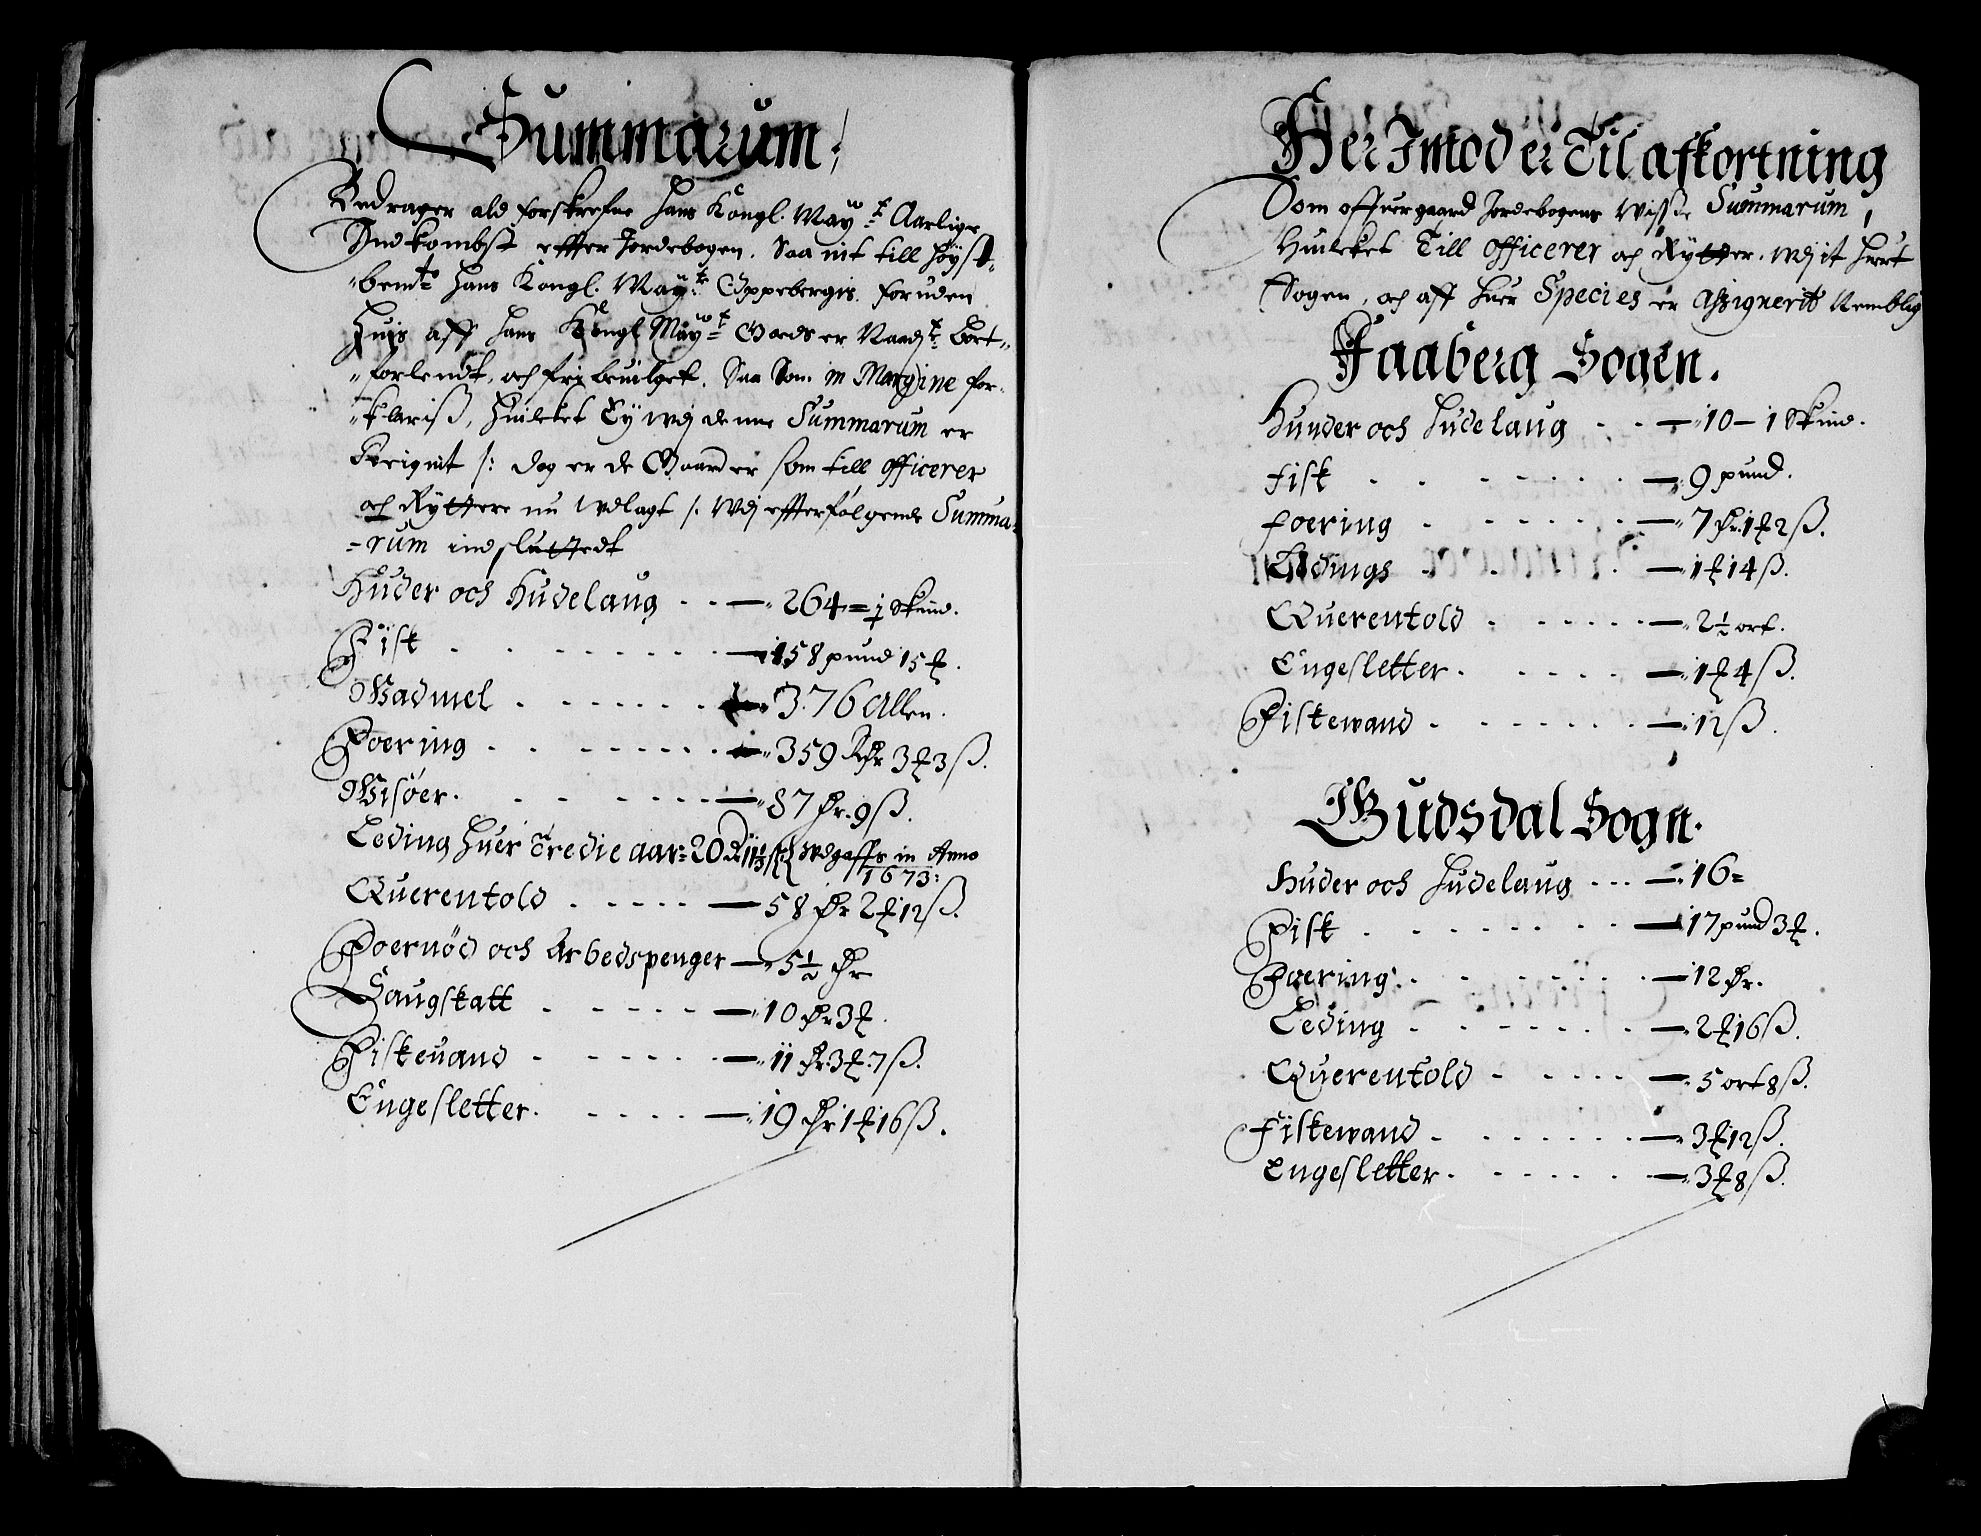 Summarum,
Bedrager ald forskrefne Hans Kongl. Mayᵗ Aarlige
Indkombst effter Jordebogen. Saa vit till höyst-
-bemᵗᵉ Hans Kongl. Mayᵗ Oppebergis. foruden
Huis aff Hans Kongl Mayᵗ Goeds er Naadᵗ. Bort-
-forlendt, och fri beuilget. Saa Som in Margine for-
-klariß, Huilcket Ey wdj denne Summarum er
Bereignit /: dog er de Gaarder som till Officerer
och Ryttere nu wdlagt /: wdj effterfølgende Summa-
-rum indsluttedt
Huder och Hudelaug - - — 264 = 1 Skind.
Fisk - - - — 158 pund 15 ℔.
Wadmel - - - — 376 Allen.
Foering - - - — 359 Rdr 3 ℔ 3 ß.
Wisøer. - - - — 87 dr. 9 ß.
Leding Huer Tredie aar: 20 Dr 11 ß wdgaffs in Anno
1673:
Querentold - - - — 58 dr 2 ℔ 12 ß.
Foernöd och Arbedspenger — 5½ dr
Saugskatt - - - — 10 dr 3 ℔.
Fiskeuand - - - — 11 dr. 3 ℔. 7 ß.
Engesletter. - - - — 19 dr 1 ℔ 16 ß.
Her Imod er Til afkortning
Som offuergaard Jordebogens Wisse Summarum,
Huilcket Till Officerer och Rytter. wdj it huert
Sogen, och aff huer Species er Assignerit Nemblig
Faaberg Sogen.
Hunder och Hudelaug - - — 10 — 1 Skind.
Fisk - - - — 9 pund.
foering - - - — 7 dr. 1 ℔ 2 ß.
Ledings - - - — 1 ℔ 14 ß.
Querentold - - - — 2½ ort.
Engesletter. - - - — 1 ℔ 4 ß.
Fiskewand - - - — 12 ß.
Gudsdal Sogn.
Huder och Hudelaug - - - — 16 =
Fisk - - - — 17 pund 3 ℔.
Foering. - - - — 12 dr.
Leding - - - — 2 ℔ 16 ß.
Querentold - - - — 5 ort 8 ß.
Fiskewand - - - — 3 ℔ 12 ß.
Engesletter. - - - — 3 ℔ 8 ß.